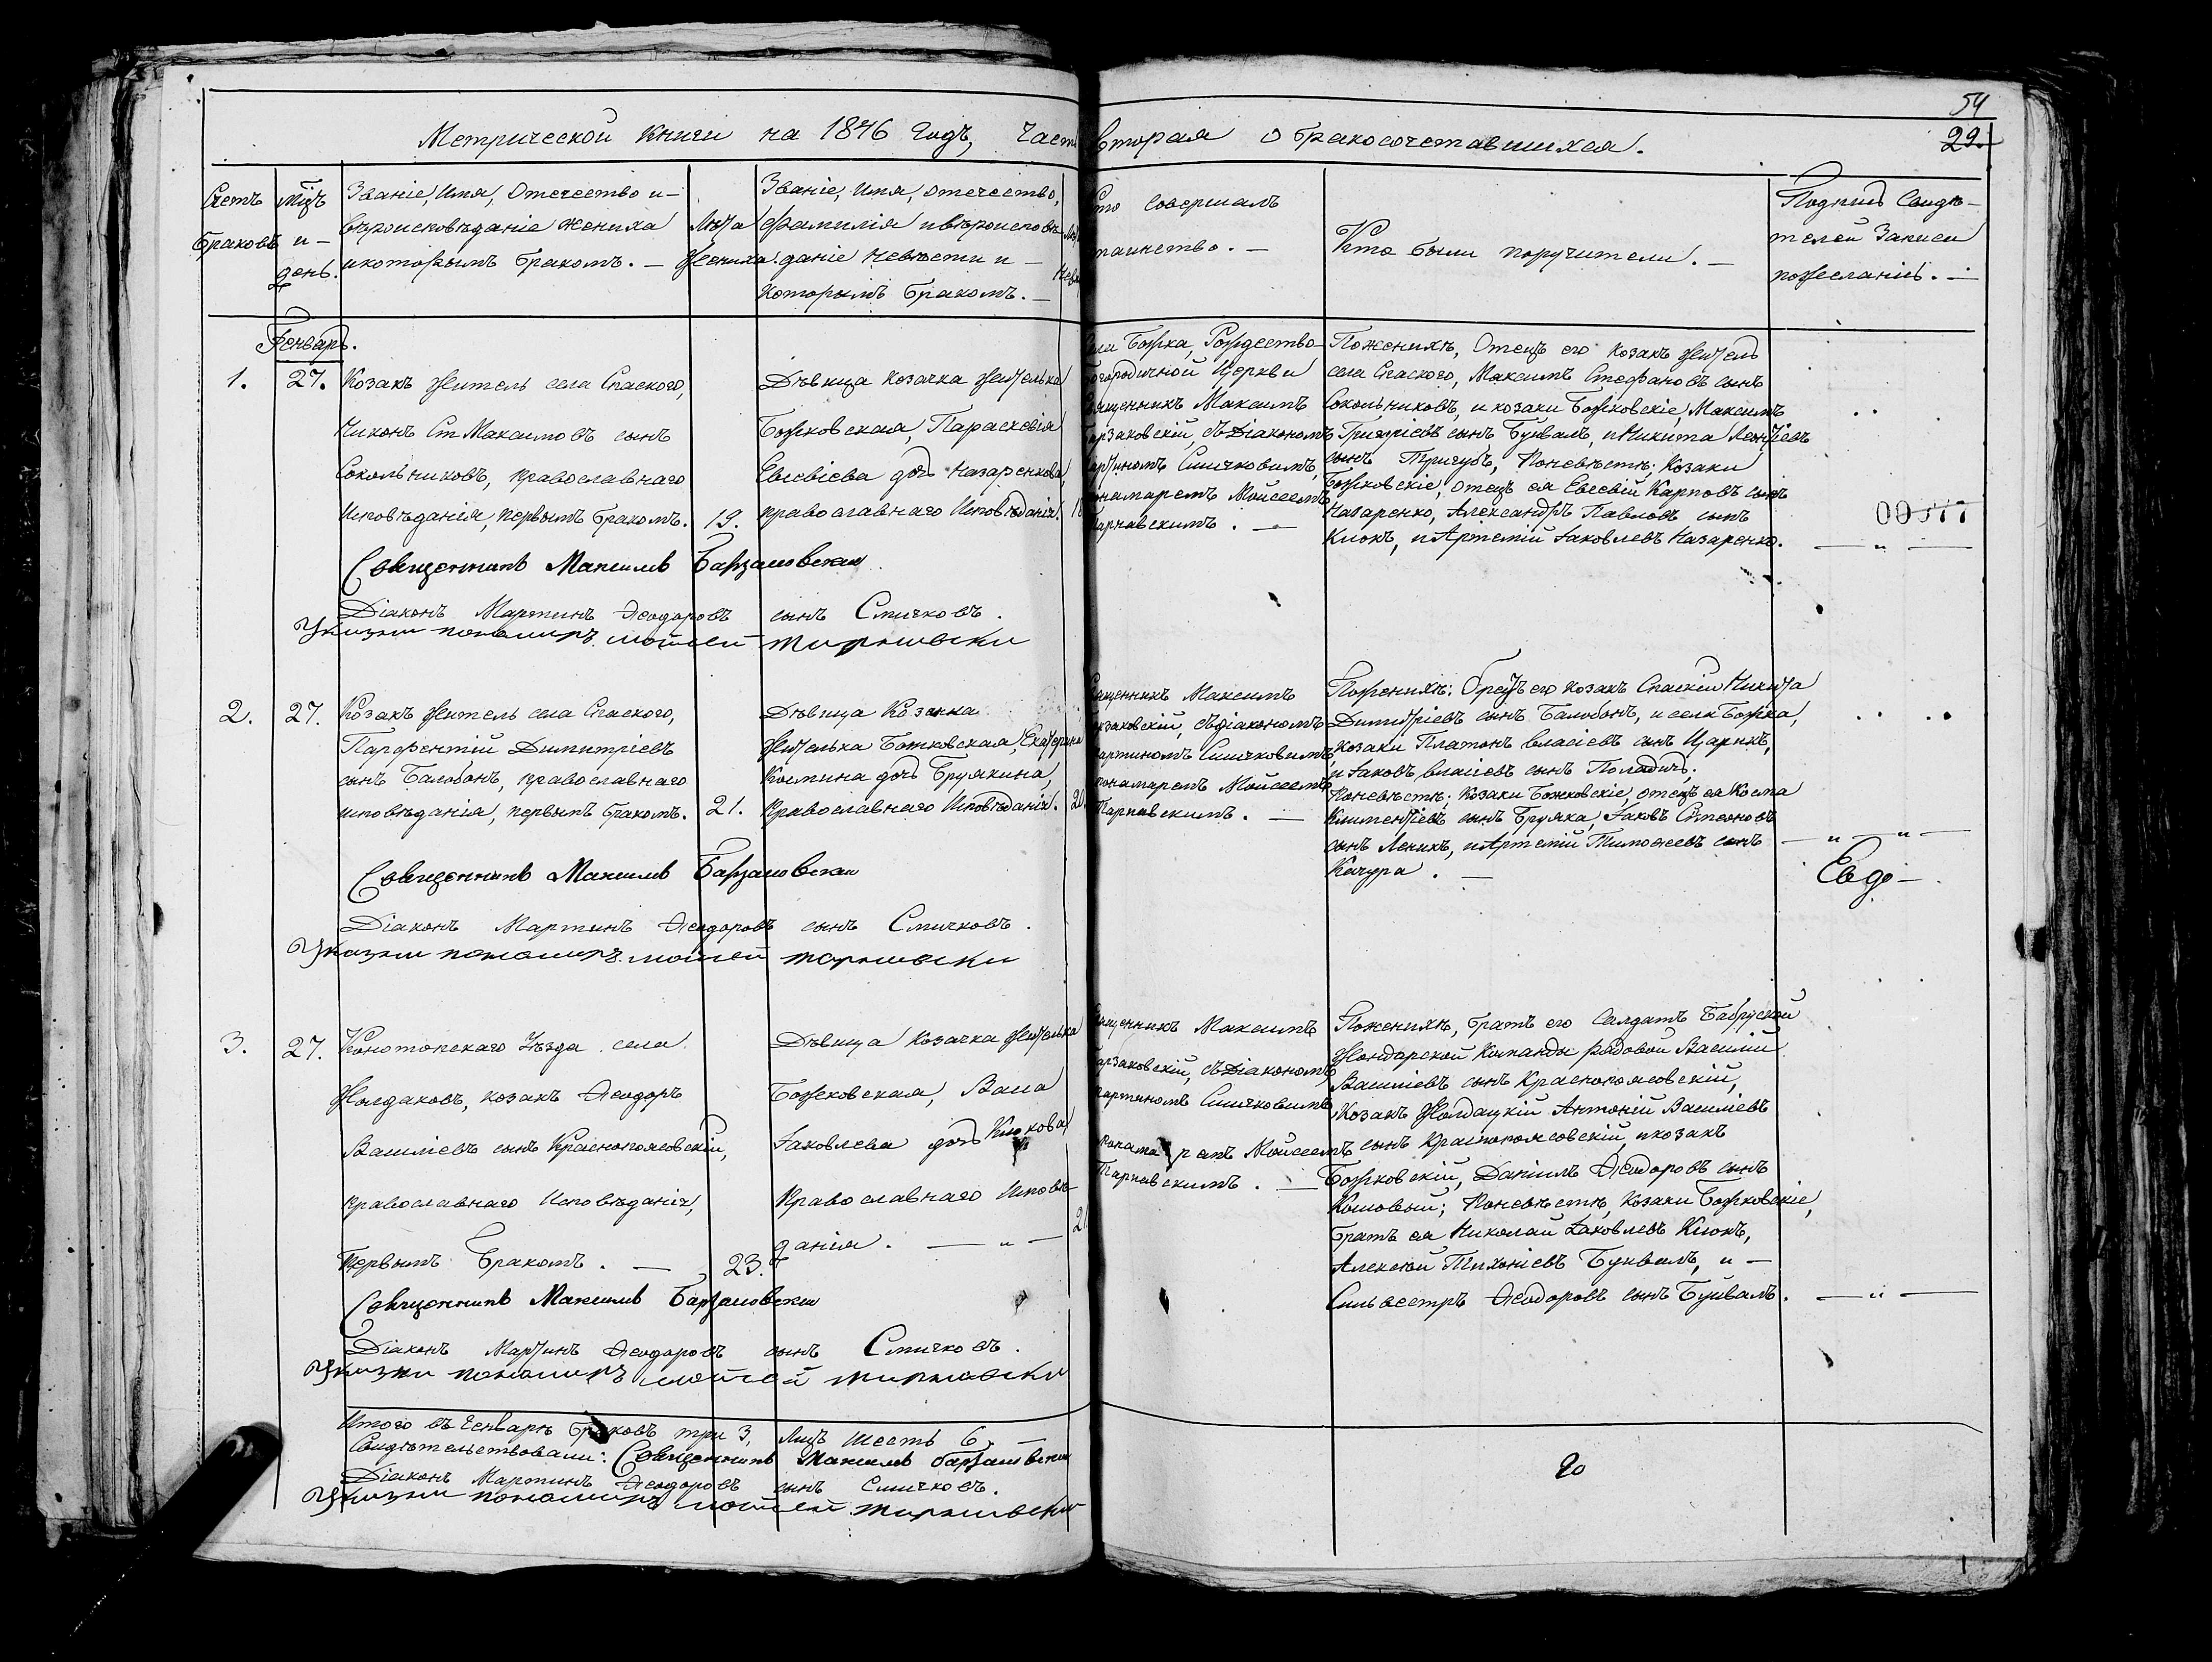 54
29.
Метрической книги на 1846 годъ, часть вторая о бракосочетавшихся.
Счетъ браковъ
Мцъ и - день.
Званіе, Имя, Отечество и -
вѣроисповѣданіе жениха
и которымъ бракомъ. -
Лѣта жениха.
Званіе, Имя, отечество,
фамилія и вѣроисповѣ-
даніе невѣсти и -
которымъ бракомъ. -
Кто совершалъ
таинство. -
Кто были поручители. -
Подпись Свидѣ-
телей Записи
по желанію. -
Генварь.
1.
27.
Козакъ житель села Спаского,
Никонъ Максимовъ сынъ
Сокольниковъ, православнаго
исповѣданія, первымъ бракомъ.
19.
Дѣвица козачка жителька
Божковская, Параскевія
Евсевіева дочь Назаренкова,
православнаго исповѣданія.
Села Божка, Рождество
Богородичной Церкви
Священникъ Максимъ
Барзаковскій, съ Діакономъ
Мартиномъ Смичковимъ,
понамаремъ Мойсеемъ
Тарнавскимъ. -
По женихѣ, Отецъ его козакъ житель
села Спаского, Максимъ Стефановъ сынъ
Сокольниковъ, и козаки Божковскіе, Максимъ
Григоріевъ сынъ Бувалъ, и Никита Леонтіевъ
сынъ Тригубъ, по невѣстѣ; козаки
Божковскіе, отецъ ея Евсевій Карповъ сынъ
Назаренко, Александръ Павловъ сынъ
Клокъ, и Артемій Іаковлевъ Назаренко.
00577
Священникъ Максимъ Барзаковскій
Діаконъ Мартинъ Ѳеодоровъ сынъ Смичковъ.
Указни пономаръ мойсей тарнавски
2.
27.
Козакъ житель села Спаского,
Парфентій Димитріевъ
сынъ Балобонъ, православнаго
исповѣданія, первымъ бракомъ.
21.
Дѣвица Козачка
жителька Божковская, Екатерина
Космина дочь Брулкина,
православнаго исповѣданія.
20.
Священникъ Максимъ
Барзаковскій, съ діакономъ
Мартиномъ Смичковимъ,
понамаремъ Мойсеемъ
Тарнавскимъ. -
По женихѣ: братъ его козакъ Спаскій Никита
Димитріевъ сынъ Балобонъ, и села Божка,
козаки Платонъ Власіевъ сынъ Царикъ,
и Іаковъ Власіевъ сынъ
По невѣстѣ; козаки Божковскіе, отецъ ея Косма
Климентіевъ сынъ Брулка, Іаковъ Симеоновъ
сынъ Леникъ, и Артемій Тимоѳеевъ сынъ
Качура. -
Священникъ Максимъ Барзаковскій
Діаконъ Мартинъ Ѳеодоровъ сынъ Смичковъ.
Указни пономаръ мойсей тарнавски
3.
27.
Конотопскаго Уѣзда села
Жолдаковъ, козакъ Ѳеодоръ
Василіевъ сынъ Краснополсовскій,
православнаго исповѣданія,
первымъ бракомъ. -
23.
Дѣвица Козачка жителька
Божковская, Васса
Іаковлева дочь Клокова,
православнаго исповѣ-
данія. -
21
Священникъ Максимъ
Барзаковскій, съ Діакономъ
Мартиномъ Смичковимъ
понамаремъ Мойсеемъ
Тарнавскимъ. -
По женихѣ, братъ его Салдатъ Бабруской
Жондарской Команды рядовой Василій
Василіевъ сынъ Краснополсовскій,
козакъ Жолдацкій Антоній Василіевъ
сынъ Краснополсовскій, и козакъ
Божковскій, Даніилъ Ѳеодоровъ сынъ
Кошовый; по невѣстѣ, козаки Божковскіе,
братъ ея Николай Іаковлевъ Клокъ,
Алексѣй Тихоніевъ Бувалъ, и -
Сильвестръ Ѳеодоровъ сынъ Бувалъ.
Священникъ Максимъ Барзаковскій
Діаконъ Мартинъ Ѳеодоровъ сынъ Смичковъ.
Указни пономаръ мойсей тарнавски
Итого въ Генварѣ браковъ три 3, лицъ шесть 6.
Свидѣтельствовали: Священникъ Максимъ Барзаковскій
Діаконъ Мартинъ Ѳеодоровъ сынъ Смичковъ.
Указни пономаръ мойсей тарнавски